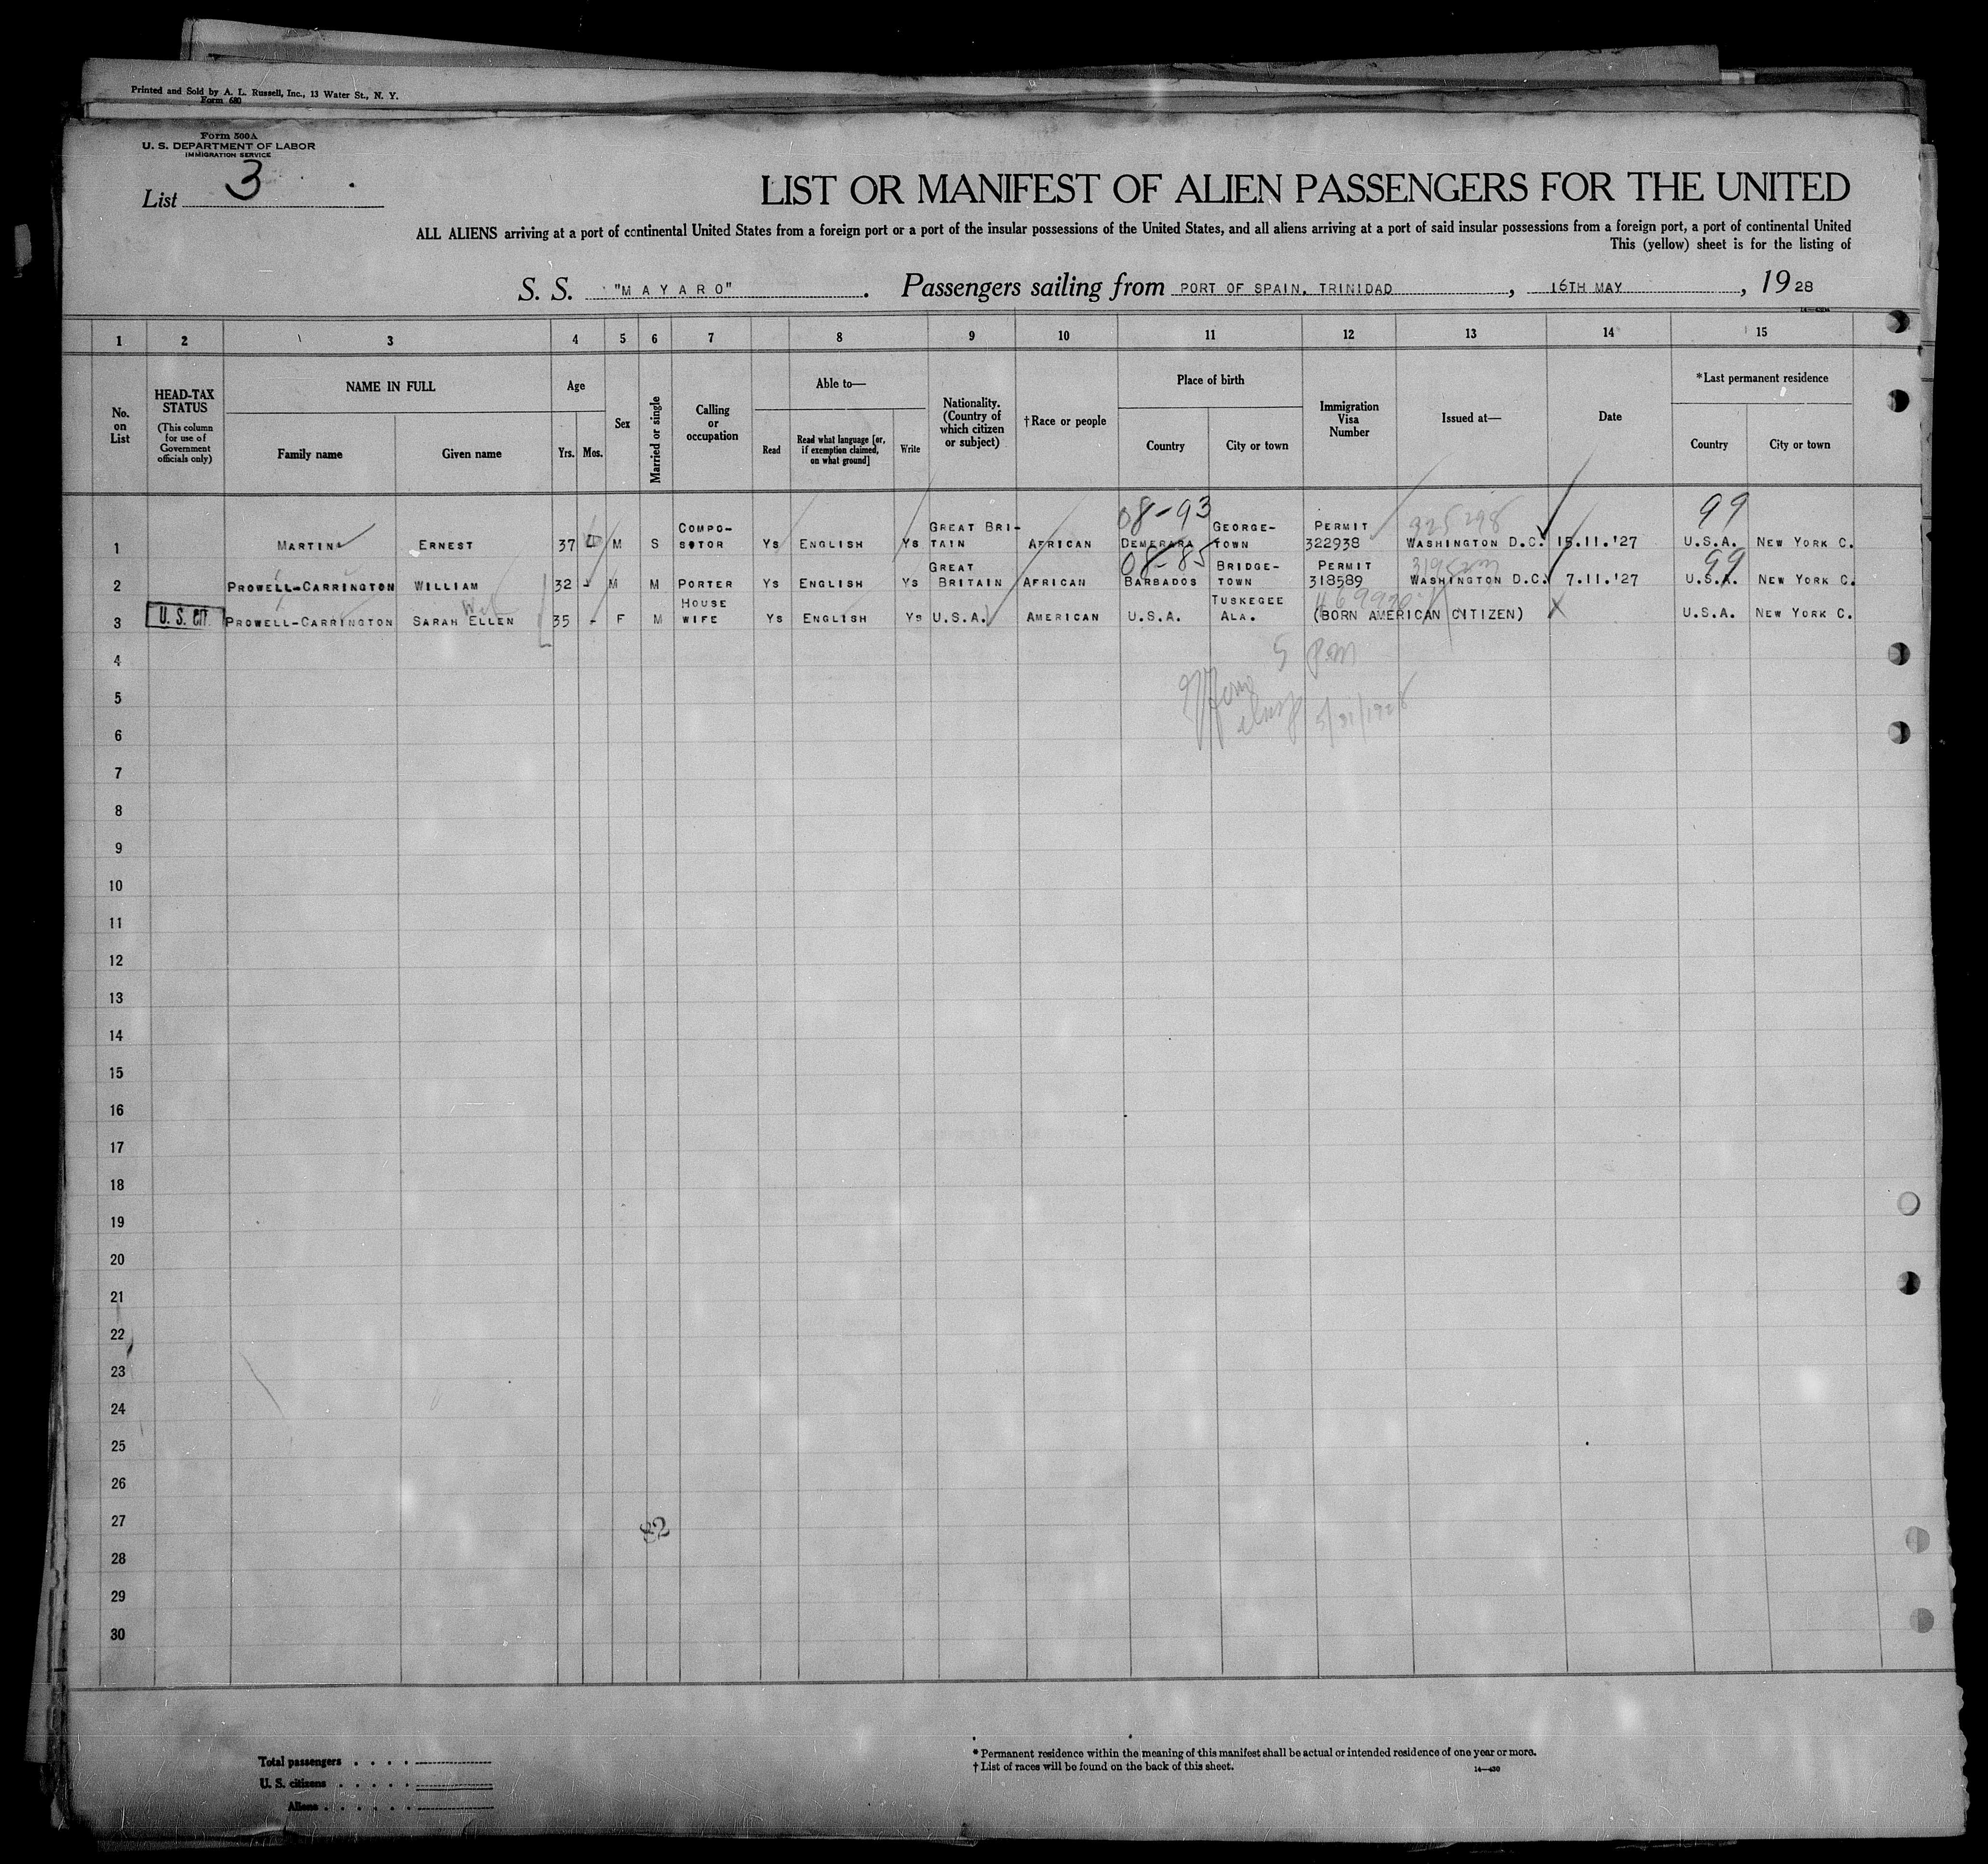 Printed and Sold by A. L. Russell, Inc., 13 Water St., N. Y.
Form 680
Form 500A
U. S. DEPARTMENT OF LABOR
IMMIGRATION SERVICE
List 3
LIST OR MANIFEST OF ALIEN PASSENGERS FOR THE UNITED
ALL ALIENS arriving at a port of continental United States from a foreign port or a port of the insular possessions of the United States, and all aliens arriving at a port of said insular possessions from a foreign port, a port of continental United
This (yellow) sheet is for the listing of
S. S. "MAYARO". Passengers sailing from PORT OF SPAIN, TRINIDAD, 16TH MAY, 1928
1 2 3 4 5 6 7 8 9 10 11 12 13 14 15
No. on List
HEAD-TAX STATUS
(This column for use of Government officials only)
NAME IN FULL
Family name
Given name
Age
Yrs. Mos.
Sex
Married or single
Calling or occupation
Able to—
Read
Read what language [or, if exemption claimed, on what ground]
Write
Nationality. (Country of which citizen or subject)
†Race or people
Place of birth
Country
City or town
Immigration Visa Number
Issued at—
Date
*Last permanent residence
Country
City or town
08-93 99
COMPO- GREAT BRI- GEORGE- PERMIT
1 MARTIN ERNEST 37 M S SITOR YS ENGLISH YS TAIN AFRICAN DEMERARA TOWN 322938 WASHINGTON D.C. 15.11.'27 U.S.A. NEW YORK C.
08-85 99
GREAT BRIDGE- PERMIT
2 PROWELL-CARRINGTON WILLIAM 32 - M M PORTER YS ENGLISH YS BRITAIN AFRICAN BARBADOS TOWN 318589 WASHINGTON D.C. 7.11.'27 U.S.A. NEW YORK C.
HOUSE TUSKEGEE
3 U. S. CIT PROWELL-CARRINGTON SARAH ELLEN 35 - F M WIFE YS ENGLISH YS U.S.A. AMERICAN U.S.A. ALA. (BORN AMERICAN CITIZEN) X U.S.A. NEW YORK C.
4
5 pm
5
5/31/1928
6
7
8
9
10
11
12
13
14
15
16
17
18
19
20
21
22
23
24
25
26
27
82
28
29
30
Total passengers . . . .
U. S. citizens . . . . .
Aliens . . . . . .
* Permanent residence within the meaning of this manifest shall be actual or intended residence of one year or more.
† List of races will be found on the back of this sheet.
14—430